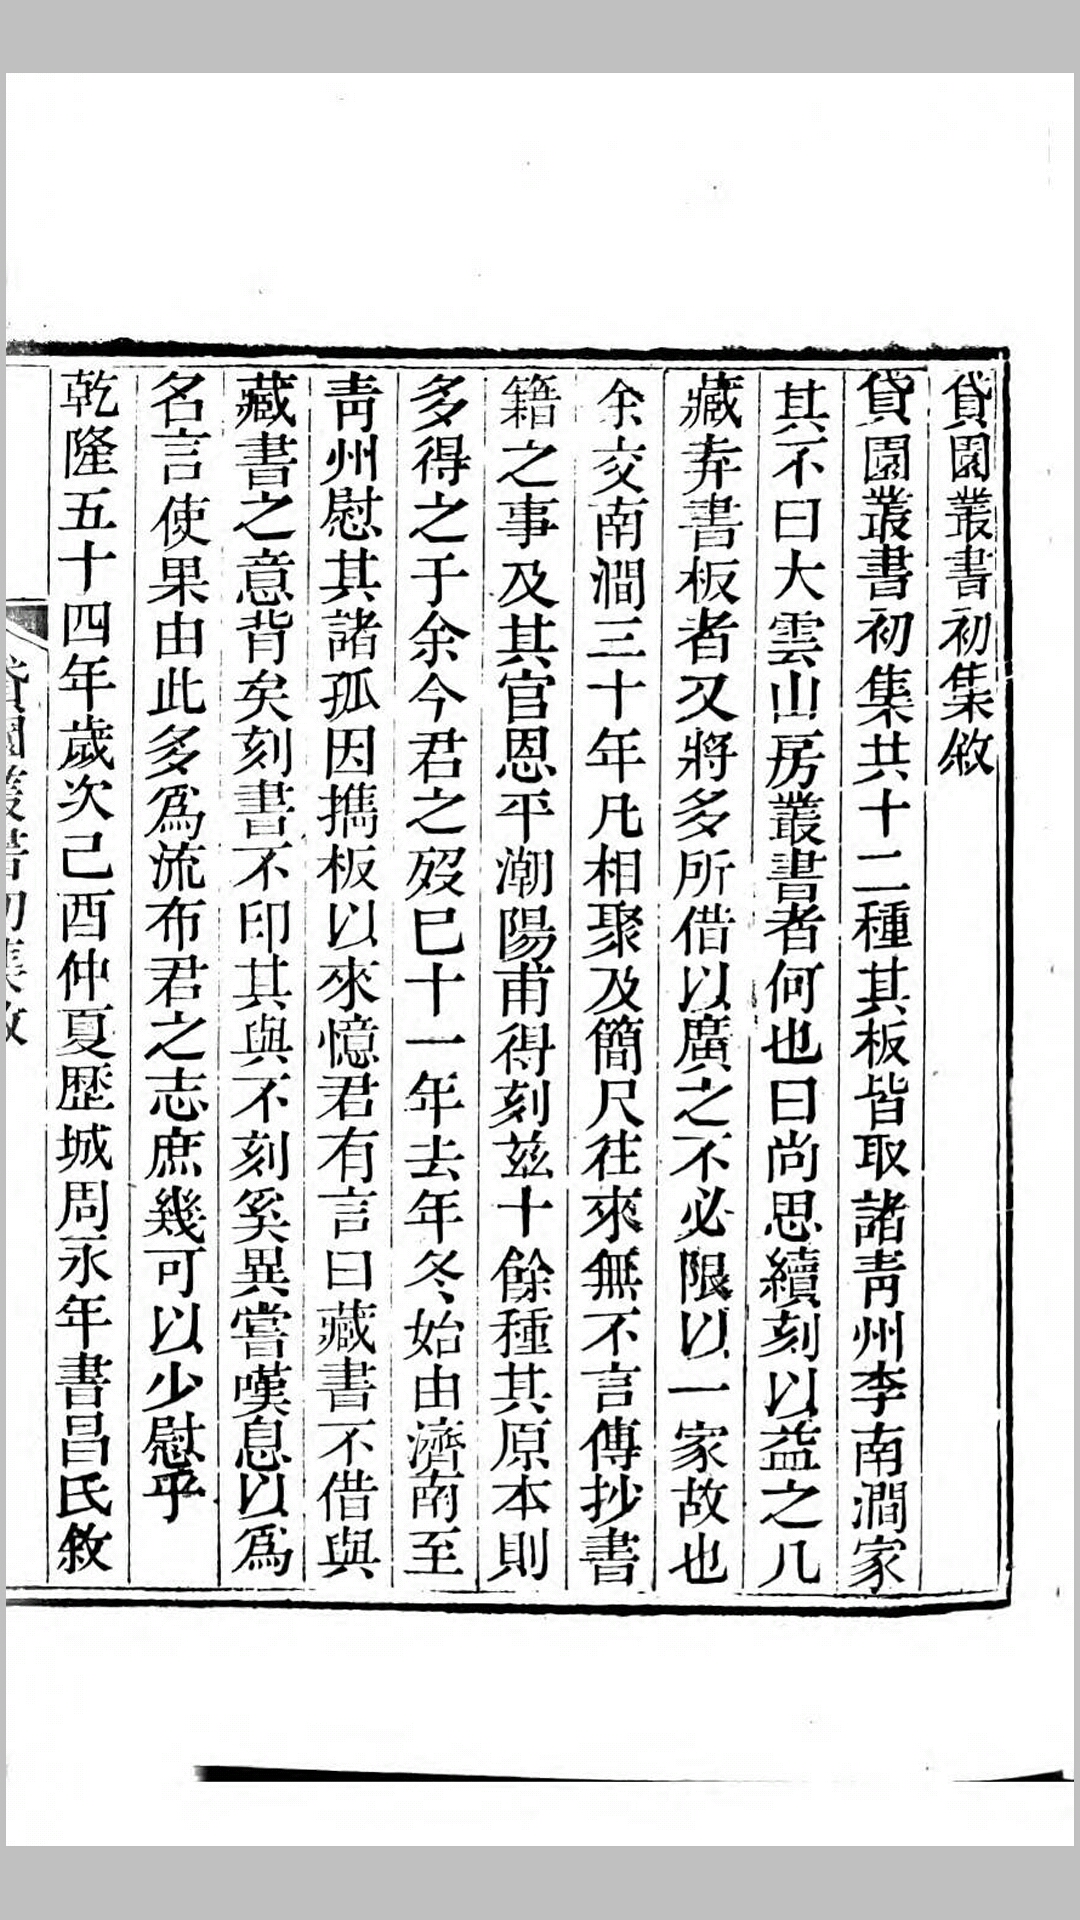 貸園叢書初集敘
貸園叢書初集共十二種其板皆取諸青州李南澗家
其不曰大雲山房叢書者何也曰尚思續刻以益之凡
藏弆書板者又將多所借以廣之不必限以一家故也
余交南澗三十年凡相聚及簡尺往來無不言傳抄書
籍之事及其官恩平潮陽甫得刻茲十餘種其原本則
多得之于余今君之歿已十一年去年冬始由濟南至
青州慰其諸孤因攜板以來憶君有言曰藏書不借與
藏書之意背矣刻書不印其與不刻奚異嘗嘆息以為
名言使果由此多為流布君之志庶幾可以少慰乎
乾隆五十四年歲次己酉仲夏歷城周永年書昌氏敘
貸園叢書初集敘